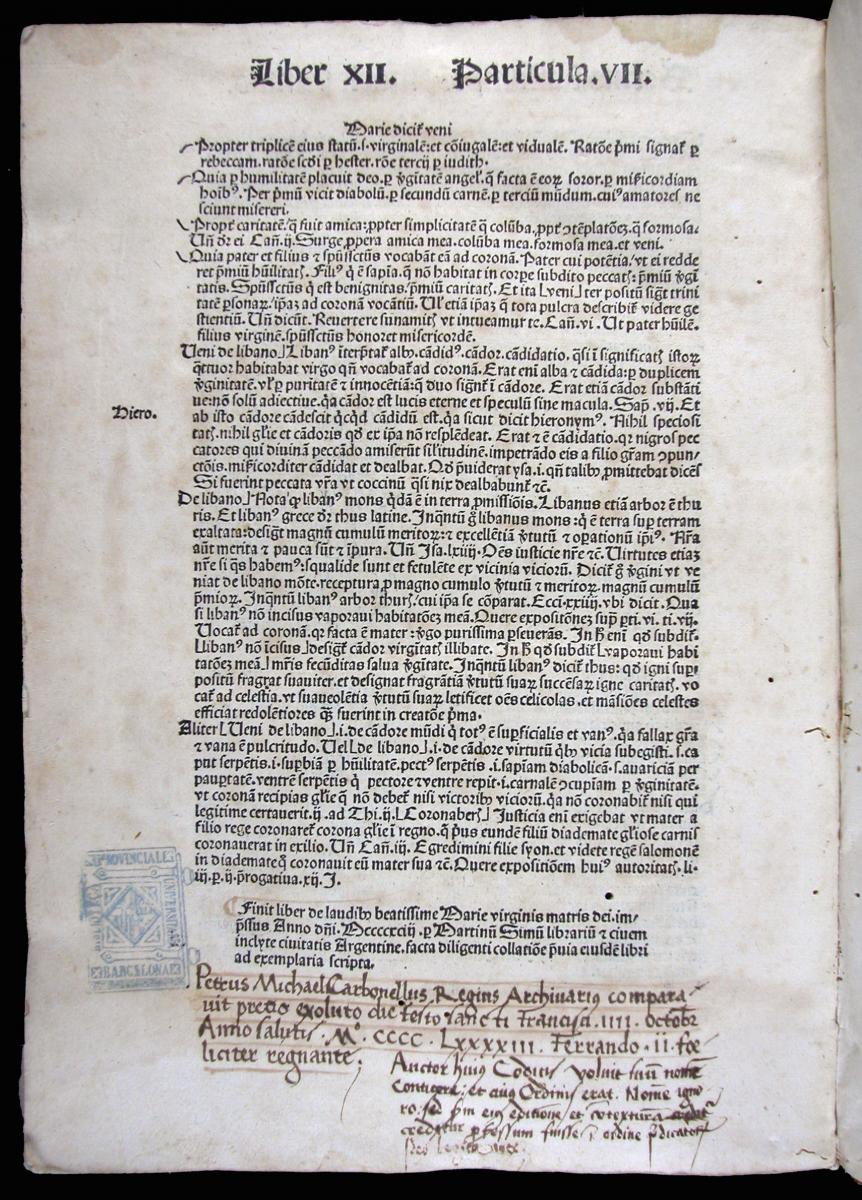 Liber XII. Particula.VII.
Marie dicit̃ veni
Propter triplicẽ eius statũ.s.virginalẽ:et cõiugalẽ:et vidualẽ. Ratõe pͥmi signat̃ ꝑ
rebeccam.ratõe scďi ꝑ hester.rõe tercij ꝑ iudith.
Quia ꝑ humilitatẽ placuit deo.ꝑ ꝟgĩtatẽ angel'.q̃ facta ẽ eoꝝ soror.ꝑ mĩcordiam
hoĩbꝰ. Per pͥmũ vicit diabolũ.ꝑ secundũ carnẽ.ꝑ terciũ mũdum.cuiꝰamatores ne
sciunt misereri.
Propt̃ caritatẽ.q̃ fuit amica:ꝓpter simplicitatẽ q̃ colũba.ꝓpt̃ ꝯtẽplatõeꝫ.q̃ formosa.
Uñ dr̃ ei Cañ.ij.Surge,ꝓpera amica mea.colũba mea.formosa mea.et veni.
Quia pater et filius ⁊ sp̃ussctũs vocabãt eã ad coronã. Pater cui potẽtia.vt ei redde
ret p̃miũ hũilitatꝭ. Filiꝰ q̇ ẽ sapĩa.q̃ nõ habitat in corp̃e subdito peccatꝭ: p̃miũ ꝟgĩ
tatis. Sp̃ussctũs q̇ est benignitas.p̃miũ caritatꝭ. Et ita veni ter positũ sigt̃ trini
tatẽ ꝑsonaꝝ.ip̃aꝫ ad coronã vocãtiũ. Ul' etiã ip̃aꝫ q̃ tota pulcra describit̃ videre ge
stientiũ. Uñ dicũt. Reuertere sunamitꝭ vt intueamur te. Cañ.vi. Ut pater hũilẽ.
filius virginẽ.sp̃ussctũs honoret misericordẽ.
Ueni de libano Libanꝰ iterp̃tat̃ albꝰ.cãdidꝰ.cãdor.cãdidatio.q̃si ĩ significatꝭ istoꝝ
q̃ttuor habitabat virgo qñ vocabat̃ ad coronã. Erat eni alba ⁊ cãdida:ꝑ duplicem
ꝟginitatẽ.vl'ꝑ puritatẽ ⁊ innocẽtiã:q̃ duo signt̃ ĩ cãdore. Erat etiã cãdor substãti
ue:non solũ adiectiue.q̃a cãdor est lucis eterne et speculũ sine macula. Sap̃.vij. Et
Hiero.
ab isto cãdore cãdescit q̃cq̃d cãdidũ est.q̃a sicut dicit hieronymꝰ. Nihil speciosi
tatꝭ.nihil gl'ie et cãdoris qď ex ip̃a nõ resplẽdeat. Erat ⁊ ẽ cãdidatio.qꝛ nigros pec
catores qui diuinã peccãdo amiserũt sil'itudinẽ.impetrãdo eis a filio gr̃am ꝯpun/
ctõis.misicorditer cãdidat et dealbat. Qď p̃uiderat ysa.i.qñ talibꝰ ꝓmittebat dicẽs
Si fuerint peccata vr̃a vt coccinũ q̃si nix dealbabunt̃ ⁊c̃.
De libano Nota qꝙ libanꝰ mons q̇dã ẽ in terra ꝓmissiõis. Libanus etiã arbor ẽ thu
ris. Et libanꝰ grece dr̃ thus latine. Inq̃ntũ g̊ libanus mons:q̇ ẽ terra suꝑ terram
exaltata:desigt̃ magnũ cumulũ meritoꝝ:⁊ excellẽtiã ꝟtutũ ⁊ oꝑationũ ip̃iꝰ. Nr̃a
aũt merita ⁊ pauca sũt ⁊ ĩpura. Uñ Isa.lxiiij.Oẽs iusticie nr̃e ⁊c̃. Uirtutes etiaꝫ
nr̃e si q̃s habemꝰ:squalide sunt et fetulẽte ex vicinia viciorũ. Dicit̃ g̊ ꝟgini vt ve
niat de libano mõte.receptura ꝓ magno cumulo ꝟtutũ ⁊ meritoꝝ.magnũ cumulũ
p̃mioꝝ. Inq̃ntũ libanꝰ arbor thurꝭ.cui ip̃a se cõparat. Ecci.xxiiij.vbi dicit. Qua
si libanꝰ nõ incisus vaporaui habitatõeꝫ meã. Quere expositõnez sup̃ ꝑti.vi.ti.vij.
Uocat̃ ad coronã.qꝛ facta ẽ mater:ꝟgo purissima ꝑseuerãs. In ħ eni qď subdit̃.
Libanꝰ nõ ĩcisus desigt̃ cãdor virgĩtatꝭ illibate. In ħ qď subdit̃ vaporaui habi
tatõeꝫ meã mr̃is fecũditas salua ꝟgĩtate. Inq̃ntũ libanꝰ dicit̃ thus: qď igni suꝑ
positũ fragrat suauiter.et designat fragrãtiã ꝟtutũ suaꝝ succẽsaꝝ igne caritatꝭ. vo
cat̃ ad celestia.vt suaueolẽtia ꝟtutũ suaꝝ letificet oẽs celicolas.et mãsiões celestes
efficiat redolẽtiores q̃ꝫ fuerint in creatõe pͥma.
Aliter Ueni de libano .i.de cãdore mũdi q̇ totꝰ ẽ suꝑficialis et vanꝰ. q̃a fallax gr̃a
⁊ vana ẽ pulcritudo. Uel de libano .i.de cãdore virtutũ qͥbꝰ vicia subegisti.s.ca
put serpẽtis.i.suꝑbiã ꝑ hũilitatẽ.pectꝰ serpẽtis .i.sapĩam diabolicã.s.auariciã per
pauꝑtatẽ.ventrẽ serpẽtis q̇ pectore ⁊ ventre repit.i.carnalẽ ꝯcupĩam ꝑ ꝟginitatẽ.
vt coronã recipias gl'ie q̃ nõ debet̃ nisi victoribꝰ viciorũ.q̃a nõ coronabit̃ nisi qui
legitime certauerit.ij.ad Thi.ij. Coronaberꝭ Justicia eni exigebat vt mater a
filio rege coronaret̃ corona gl'ie ĩ regno.q̃ pͥus eundẽ filiũ diademate gl'iose carnis
coronauerat in exilio. Uñ Cañ.iij. Egredimini filie syon.et videte regẽ salomonẽ
in diademate q̊ coronauit eũ mater sua ⁊c̃. Quere expositiõem huiꝰ autoritatꝭ.li.
iij.ꝑ.ij.p̃rogatiua.xij.J.
Finit liber de laudibꝰ beatissime Marie virginis matris dei.im/
p̃ssus Anno dñi.Mccccxciij.ꝑ Martinũ Simũ librariũ ⁊ ciuem
inclyte ciuitatis Argentine.facta diligenti collatiõe p̃uia eiusdẽ libri
ad exemplaria scripta.
PROVINCIALE
BARCELONA
Petrus Michael Carbonellus Regius Archivariꝰ compara-
uit precio exoluto die festo sancti Francisci.IIII. Octobr̃
Anno salutis. M°. CCCC. LXXXXIII. Ferrando.II.foe
liciter regnante;
Auctor huius Codicis voluit suũ nomẽ
et cuiꝰ Ordinis erat. Nomẽ igno
ro. sed editionẽ et cõtexturã
creditur ꝓfessum fuisse ĩ ordine p̃dicatoꝝ